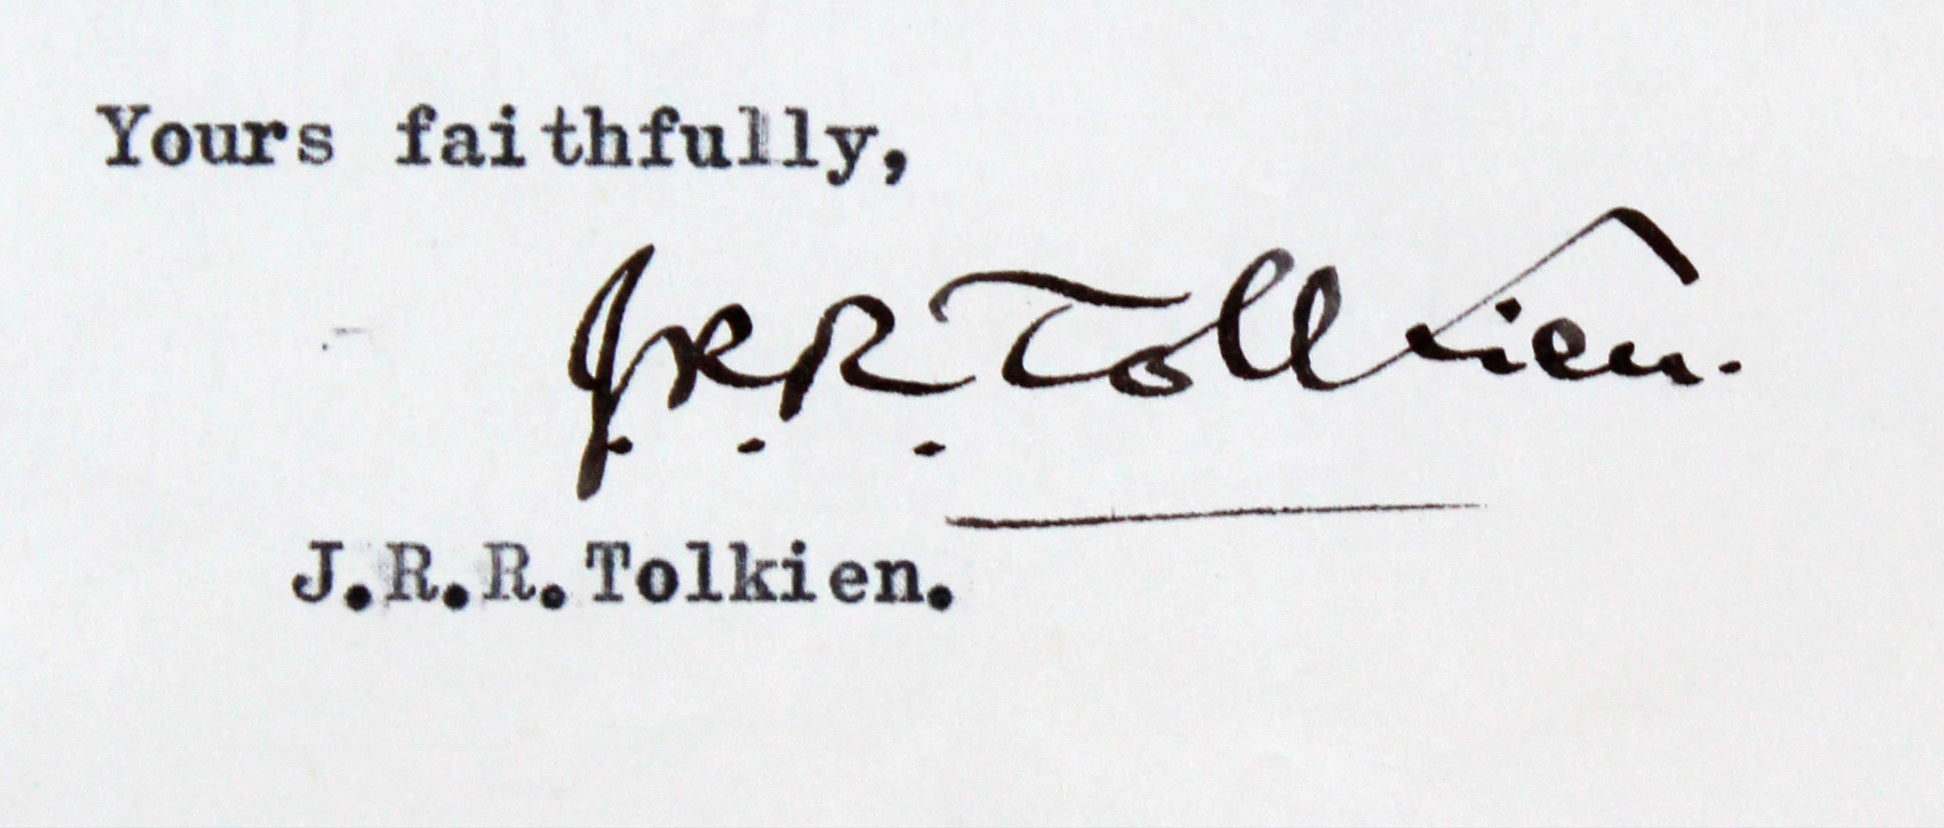 Yours faithfully,
J.R.R. Tolkien.
J.R.R.Tolkien.